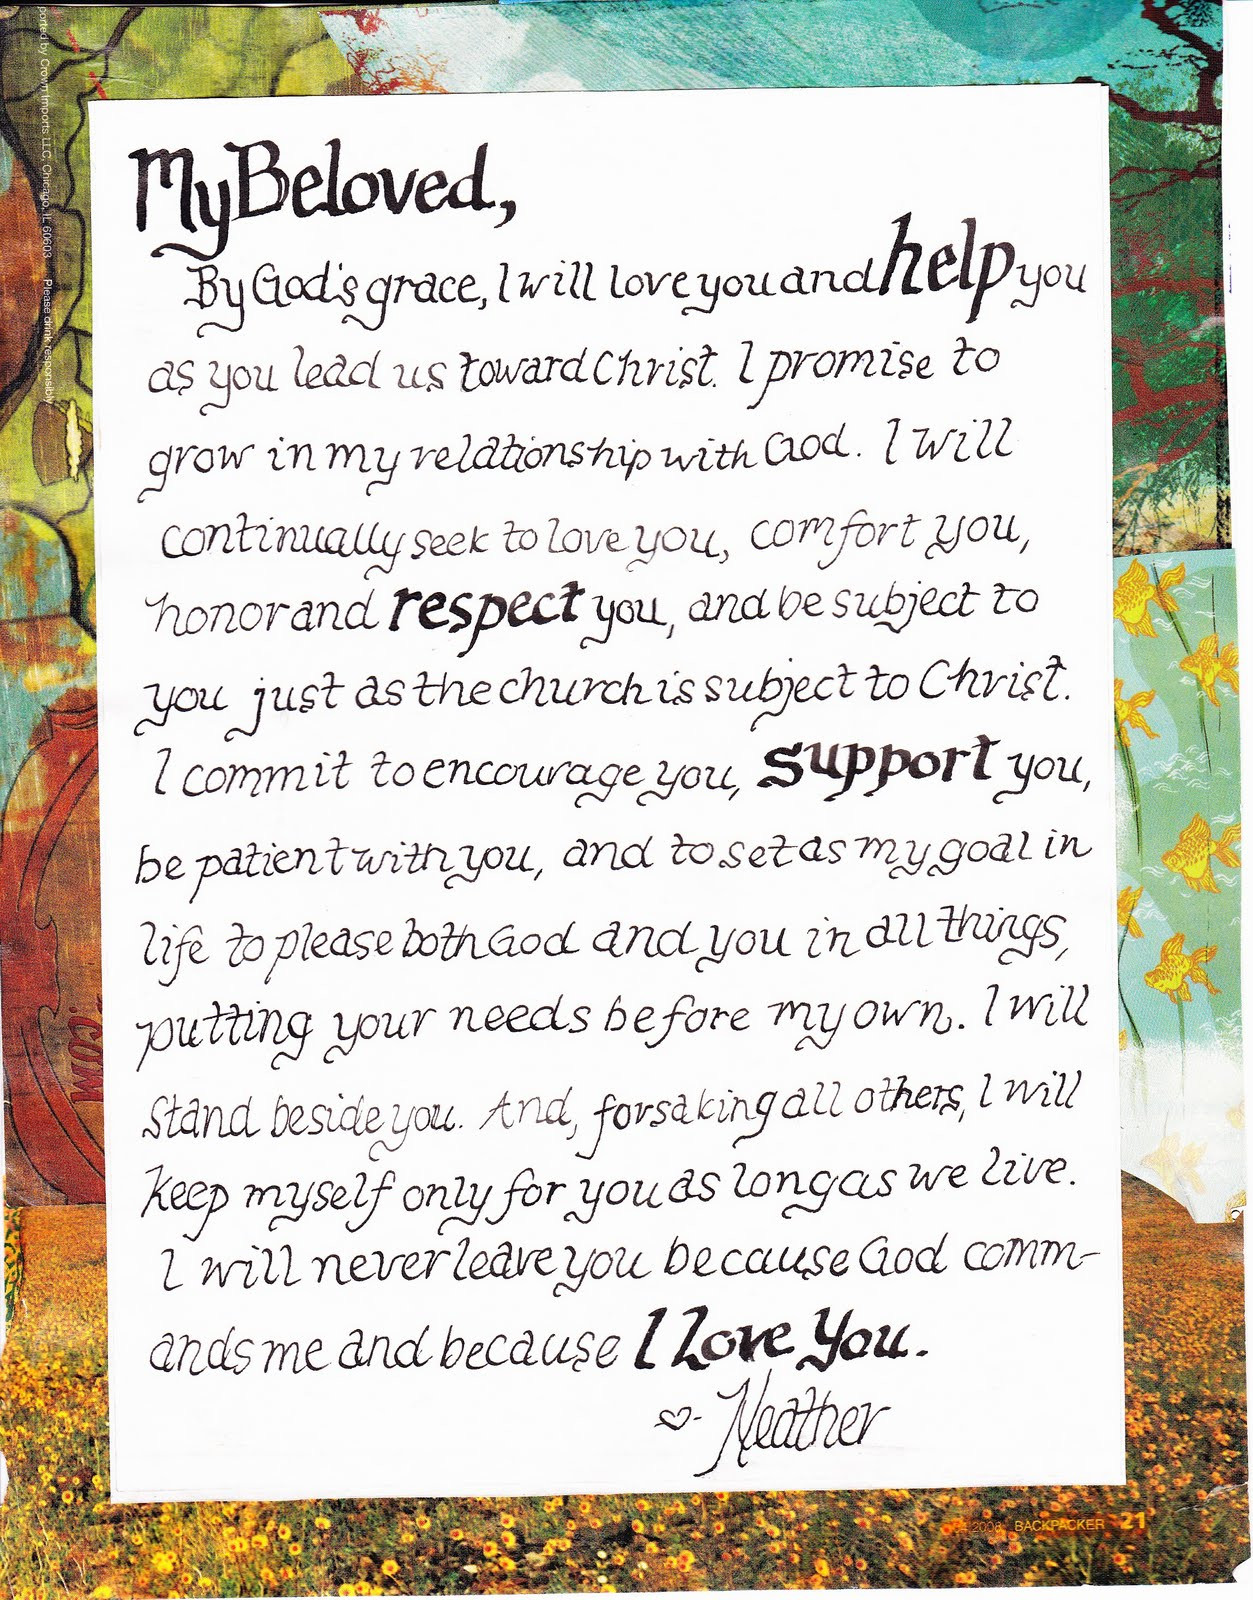 ported by Crown Imports LLC, Chicago, IL 60603 Please drink responsibly
My Beloved,
By God's grace, I will love you and help you
as you lead us toward Christ. I promise to
grow in my relationship with God. I will
continually seek to love you, comfort you,
honor and respect you, and be subject to
you just as the church is subject to Christ.
I commit to encourage you, support you,
be patient with you, and to set as my goal in
life to please both God and you in all things,
putting your needs before my own. I will
stand beside you. And, forsaking all others, I will
keep myself only for you as long as we live.
I will never leave you because God comm-
ands me and because I Love You.
♡- Heather
.com
2008 BACKPACKER 21